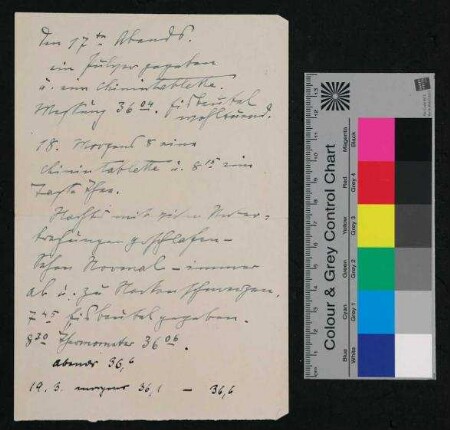 Den 17ten Abends.
ein Pulver gegeben
u. eine Chinintablette.
Messung 36 04. Eisbeutel
wohltuend.
18. Morgens 8 eine
Chinin tablette u. 8 15 ein
Nachts mit
geschlafen –
Normal – immer
ab u. zu
7 45 Eisbeutel gegeben.
8 30 Thermometer 36 06.
abends 36,6
19. 3. morgens 36,1 – 36,6
Colour & Grey Control Chart
Blue Cyan Green Yellow Red Magenta
White Grey 1 Grey 2 Grey 3 Grey 4 Black